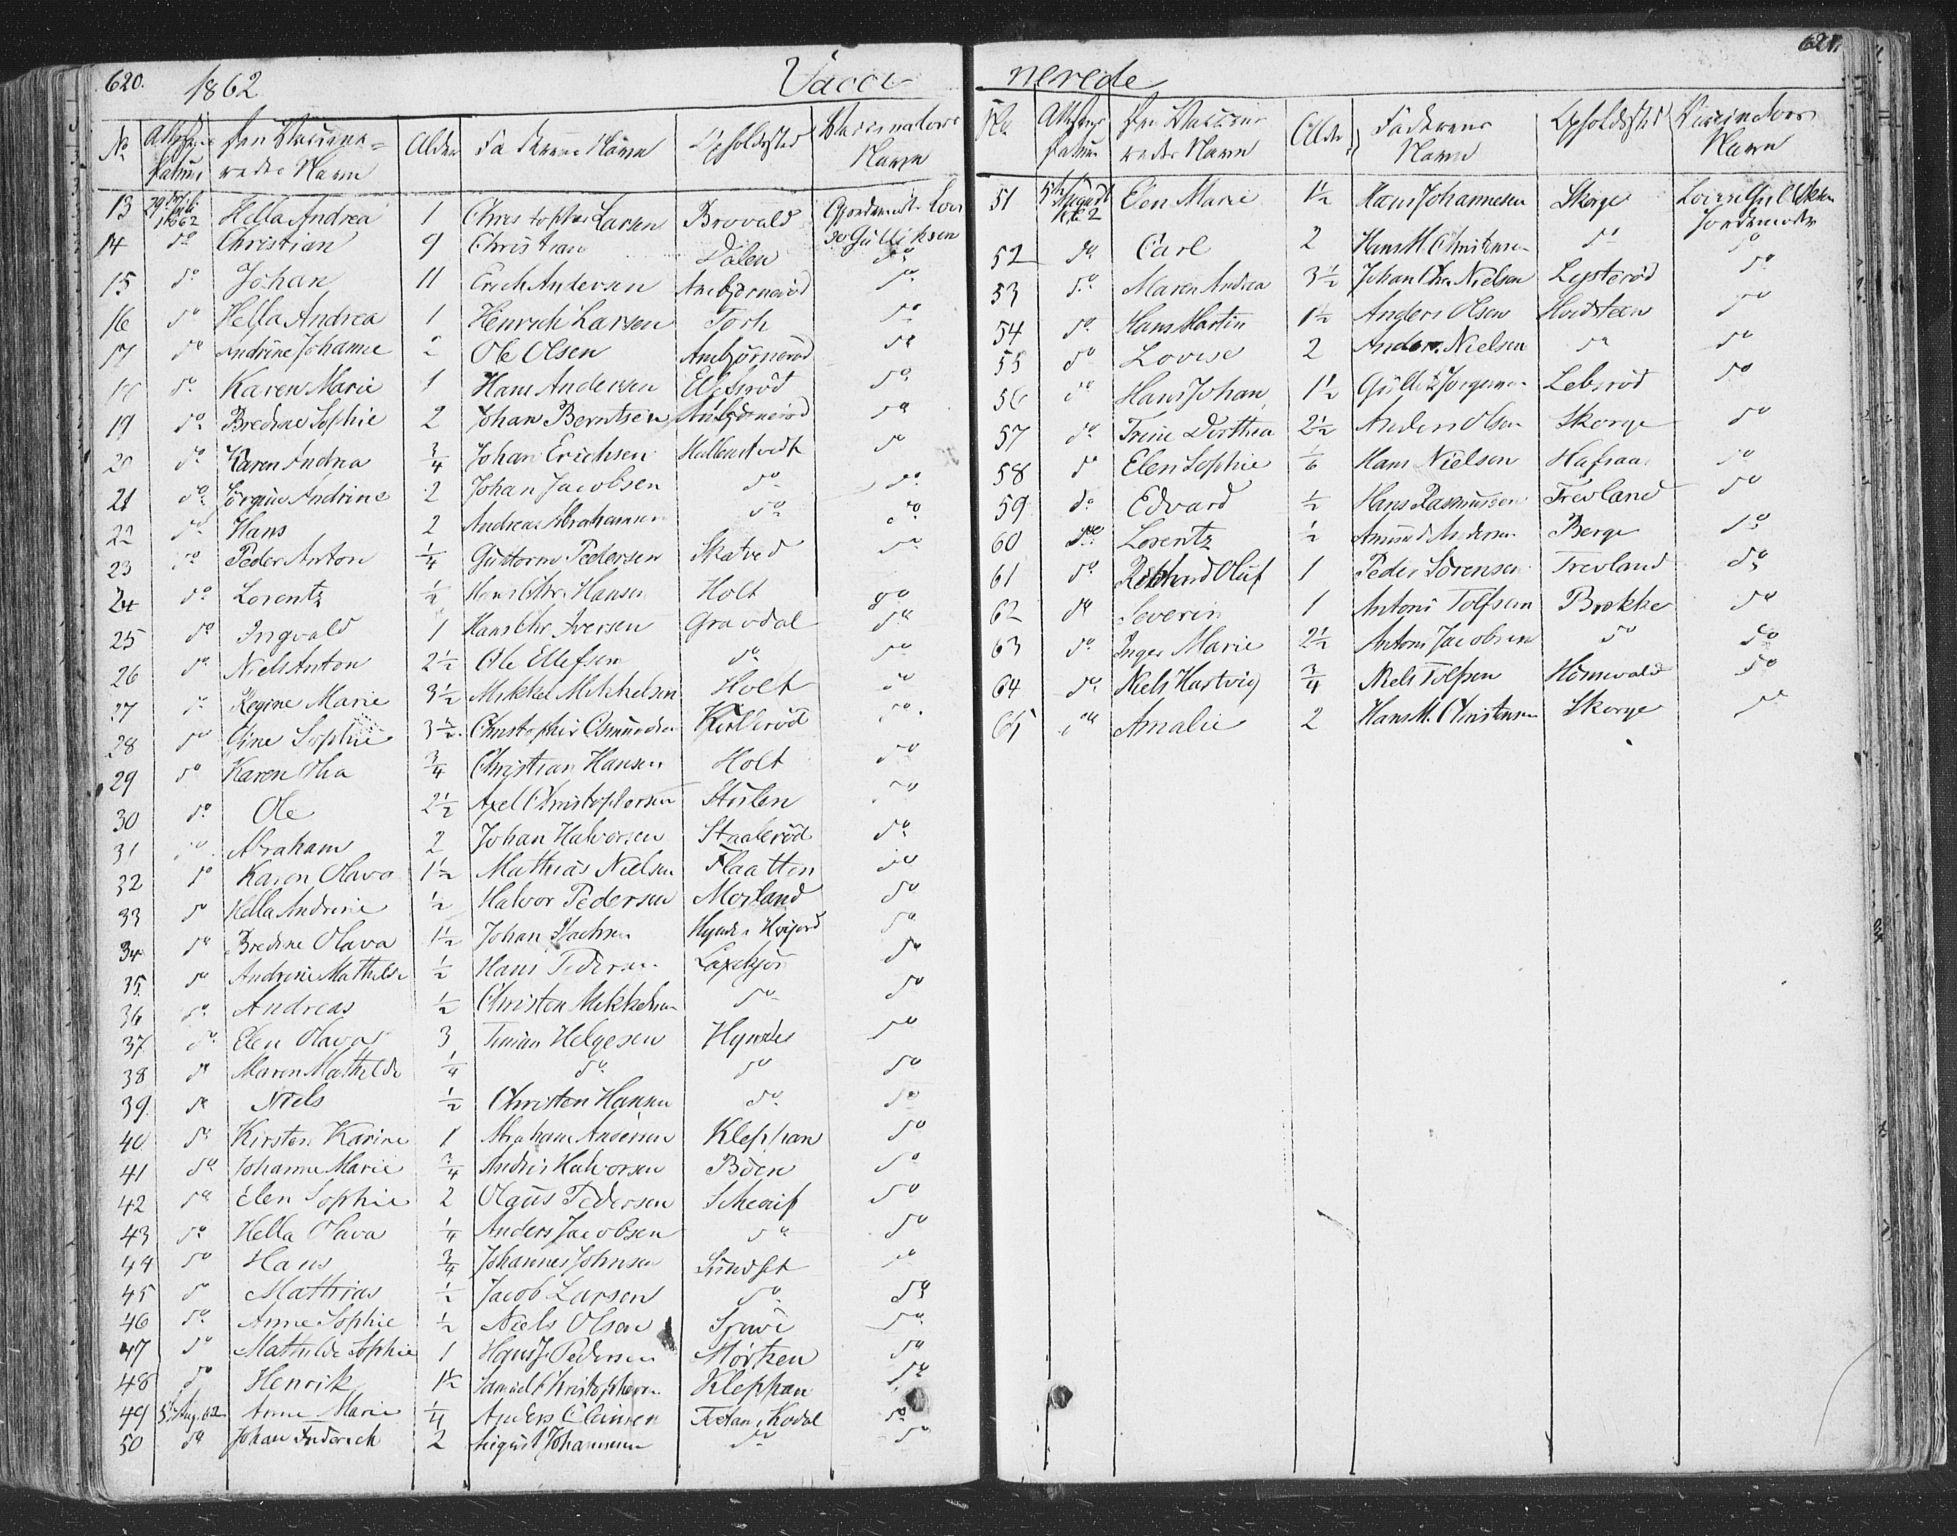 620.
1862
Vacci
No Attestens Datum Den Vaccine- redes Navn Alder Faderens Navn Opholdssted Vaccinateurs Navn
13 1862 Hella Andrea 1 Christopher Larsen Brovald Gjordemoder
14 do Christian 9 Christian Dalen Gullichsen do
15 do Johan 11 Erich Andersen Anebjørnerød do
16 do Hella Andrea 1 Henrich Larsen Torh do
17 do Andrine Johanne 2 Ole Olsen Anebjørnerød do
18 do Karen Marie 1 Hans Andersen Elefsrød do
19 do Bredine Sophie 2 Johan Berntsen Anebjørnerød do
20 do Karen Andrea 3/4 Johan Erichsen Hallenstvedt do
21 do Jørgine Andrine 2 Johan Jacobsen do do
22 do Hans 2 Andreas Abrahamsen do do
23 do Peder Anton 1/4 Guttorm Pedersen Skatved do
24 do Lorentz 1/2 Hans Chr. Hansen Holt do
25 do Ingvald 1 Hans Chr. Iversen Gravdal do
26 do Niels Anton 2 1/2 Ole Ellefsen do do
27 do Regine Marie 3 1/2 Mikkel Mikkelsen Holt do
28 do Sophie 3 1/2 Christopher Osmundsen do
29 do Karen Olia 3/4 Christian Hansen Holt do
30 do Ole 2 1/2 Axel Christophersen Stulen do
31 do Abraham 2 Johan Halvorsen Staalerød do
32 do Karen Olava 1 1/2 Mathias Nielsen Flaatten do
33 do Hella Andrine 1/2 Halvor Pedersen Moiland do
34 do Bredine Olava 1 1/2 Johan do
35 do Andrine Mathilde 1/2 Hans Pedersen do
36 do Andreas 1/2 Christen Mikkelsen do do
37 do Elen Olava 3 Simon Helgesen Hynnes do
38 do Maren Mathilde 1/4 do do do
39 do Niels 1/2 Christen Hansen do do
40 do Kirsten Karine 1 Abraham Andersen Kleppan do
41 do Johanne Marie 3/4 Anders Halvorsen Böen do
42 do Elen Sophie 2 Olaus Pedersen do
43 do Hella Olava 1/4 Anders Jacobsen do do
44 do Hans 3/4 Johannes Johnsen Sundset do
45 do Mathias 1/2 Jacob Larsen do do
46 do Anne Sophie 1/2 Niels Olsen do
47 do Mathilde Sophie 1 Hans J. Pedersen Mørken do
48 do Henrik 1 1/2 Samuel Christophersen Kleppan do
49 5 Aug. 62 Anne Marie 1/4 Anders Kodal do
50 do Johan Frederich 2 August Johannesen do do
621.
nerede
No Attestens Datum Den Vaccine- redes Navn Alder Faderens Navn Opholdssted Vaccinateurs Navn
51 5 August 1862 Elen Marie 1 1/2 Hans Johannesen Skorge Lovise Gullichsen Jordemoder
52 do Carl 2 Hans M. Christensen do do
53 do Maren Andrea 3 1/2 Johan Chr. Nielsen Lysterød do
54 do Hans Martin 1 1/2 Anders Olsen Hvidsteen do
55 do Lovise 2 Anders Nielsen do do
56 do Hans Johan 1 1/2 Gullik Jørgensen Lebsrød do
57 do Trine Dorthea 2 1/2 Anders Olsen Skorge do
58 do Elen Sophie 1/6 Hans Nielsen Hafsaas do
59 do Edvard 1/2 Hans Rasmussen Trevland do
60 do Lorentz 1/2 Amund Andersen Berge do
61 do Richard Oluf 1 Peder Sørensen Trevland do
62 do Severin 1 Anton Tolfsen Brekke do
63 do Inger Marie 2 1/2 Anton Jacobsen do do
64 do Niels Hartvig 3/4 Niels Tolfsen Hörnevald do
65 do Amalie 2 Hans M. Christensen Skorge do